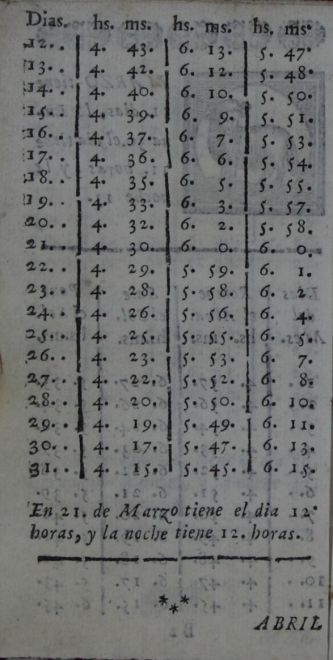 Dias. hs. ms. hs. ms. hs. ms.
12. . 4. 43. 6. 13. 5. 47.
13. . 4. 42. 6. 12. 5. 48.
14. . 4. 40. 6. 10. 5. 50.
15. . 4. 39. 6. 9. 5. 51.
16. . 4. 37. 6. 7. 5. 53.
17. . 4. 36. 6. 6. 5. 54.
18. . 4. 35. 6. 5. 5. 55.
19. . 4. 33. 6. 3. 5. 57.
20. . 4. 32. 6. 2. 5. 58.
21. . 4. 30. 6. 0. 6. 0.
22. . 4. 29. 5. 59. 6. 1.
23. . 4. 28. 5. 58. 6. 2.
24. . 4. 26. 5. 56. 6. 4.
25. . 4. 25. 5. 55. 6. 5.
26. . 4. 23. 5. 53. 6. 7.
27. . 4. 22. 5. 52. 6. 8.
28. . 4. 20. 5. 50. 6. 10.
29. . 4. 19. 5. 49. 6. 11.
30. . 4. 17. 5. 47. 6. 13.
31. . 4. 15. 5. 45. 6. 15.
En 21. de Marzo tiene el dia 12.
horas, y la noche tiene 12. horas.
***
ABRIL